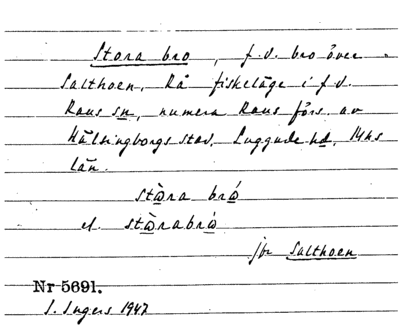 Stora bro, f.d. bro över
Salthoen, Rå fiskeläge i f.d.
Raus sn, numera Raus förs. av
Hälsingborgs stad, Luggude hd, Mhs
län.
stòra bró
el. stòrabró
jfr Salthoen
Nr 5691.
I. Ingers 1947